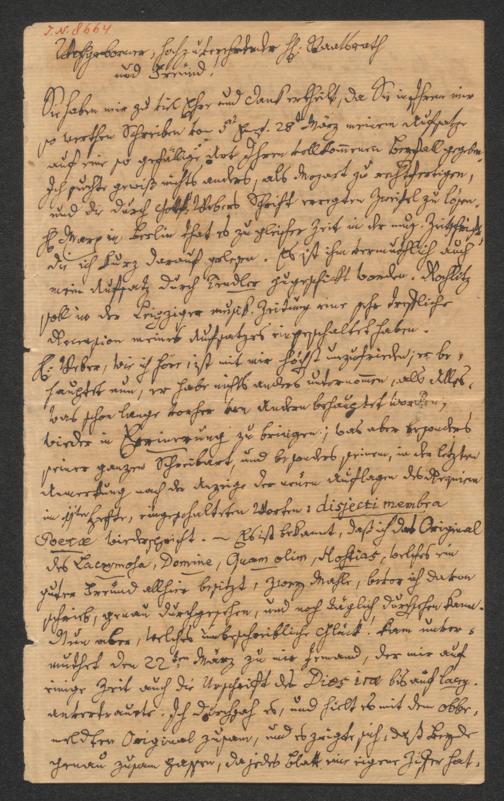 I.N. 8664
Wohlgeborner, hochzuverehrender H: Staatsrath
und Freund!
Sie haben mir zu viel Ehre und Dank ertheilt, da Sie in Ihrem mir
so werthen Schreiben von 28t März meinem Aufsatze
auf eine so gefällige Art Ihren vollkommenen Beyfall gegeben.
Ich suchte gewiß nichts anders, als Mozart zu rechtfertigen,
und die durch Gottf. Webers Schrift erregten Zweifel zu lösen.
H: Marx in Berlin that es zu gleicher Zeit in der mus. Zeitschrift,
die ich kurz darauf gelesen. Es ist ihm vermuthlich auch
mein Aufsatz durch Tendler zugeschickt worden. Rochlitz
soll in der Leipziger musik. Zeitung eine sehr treffliche
Recension meines Aufsatzes eingeschaltet haben.
H: Weber, wie ich höre, ist mit mir höchst unzufrieden; er be,
hauptet nun, er habe nichts anders unternommen, als Alles,
was schon lange vorher von Andern behauptet worden,
wieder in Erinnerung zu bringen; was aber besonders
seiner ganzen Schreibart, und besonders seinem, in der letzten
Anmerkung nach der Anzeige der neuen Auflagen des Requiem
im Hefte, eingeschalteten Worten: disjecti membra
Poetæ widerspricht. – Es ist bekannt, daß ich das Original
des Lacrymosa, Domine, Quam olim, Hostias, welches ein
guter Freund allhier besitzt, zwey Mahle, bevor ich davon
schrieb, genau durchgesehen, und noch täglich durchsehen kann.
Nun aber, welches unbeschreibliche Glück! kam unver,
muthet den 22ten März zu mir Jemand, der mir auf
einige Zeit auch die Urschrift des Dies iræ bis auf Lacry.
anvertraute. Ich durchsah es, und hielt es mit dem obbe,
meldten Original zusam, und es zeigte sich, daß Beyde
genau zusam passen, da jedes Blatt eine eigene Ziffer hat,